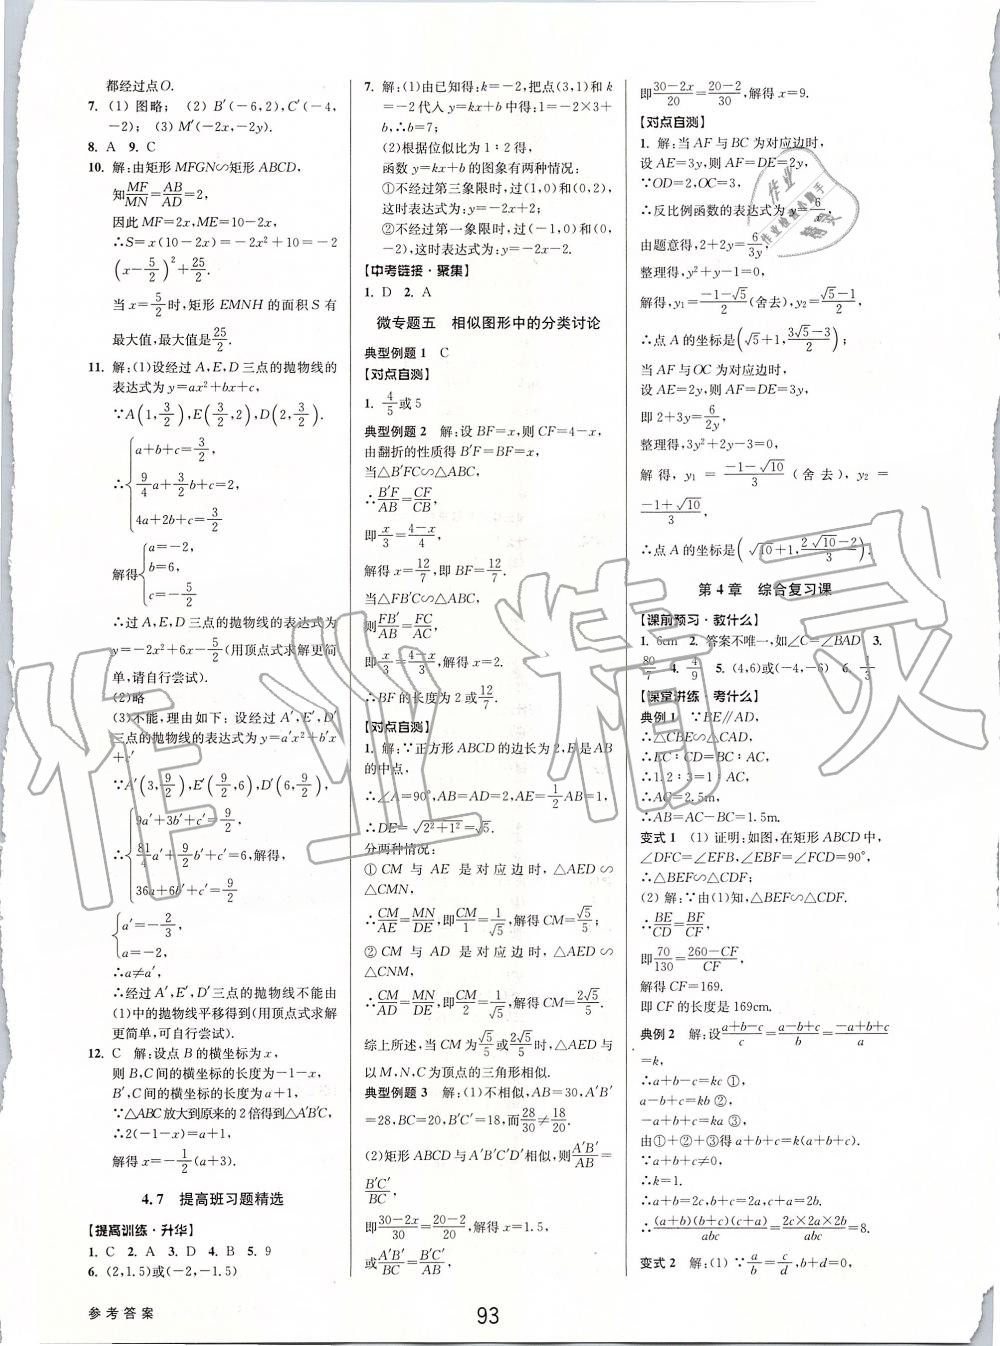 都经过点O.
7. (1) 图略; (2) B′(-6,2),C′(-4,
-2); (3) M′(-2x,-2y).
8. A 9. C
10. 解:由矩形 MFGN∽矩形 ABCD,
知MF/MN=AB/AD=2,
因此 MF=2x,ME=10-2x,
∴S=x(10-2x)=-2x²+10=-2
(x-5/2)²+25/2.
当 x=5/2时,矩形 EMNH 的面积 S 有
最大值,最大值是25/2.
11. 解:(1)设经过 A,E,D 三点的抛物线的
表达式为 y=ax²+bx+c,
∵A(1,3/2),E(3/2,2),D(2,3/2).
∴{a+b+c=3/2,
9/4a+3/2b+c=2,
4a+2b+c=3/2
解得{a=-2,
b=6,
c=-5/2
∴过 A,E,D 三点的抛物线的表达式为
y=-2x²+6x-5/2(用顶点式求解更简
单,请自行尝试).
(2)略
(3)不能,理由如下:设经过 A′,E′,D′
三点的抛物线的表达式为 y=a′x²+b′x
+c′
∵A′(3,9/2),E′(9/2,6),D′(6,9/2),
∴{9a′+3b′+c′=9/2,
81/4a′+9/2b′+c′=6,解得,
36a+6b′+c′=9/2
{a′=-2/3,
a=-2,
∴a≠a′,
∴经过 A′,E′,D′三点的抛物线不能由
(1)中的抛物线平移得到(用顶点式求解
更简单,可自行尝试).
12. C 解:设点 B 的横坐标为 x,
则 B,C间的横坐标的长度为-1-x,
B′,C间的横坐标的长度为 a+1,
∵△ABC放大到原来的 2 倍得到△A′B′C,
∴2(-1-x)=a+1,
解得 x=-1/2(a+3).
4.7 提高班习题精选
【提高训练·升华】
1. C 2. A 3. D 4. B 5. 9
6. (2,1.5)或(-2,-1.5)
7. 解:(1)由已知得:k=-2,把点(3,1)和 k
=-2代入 y=kx+b 中得:1=-2×3+
b,∴b=7;
(2)根据位似比为 1∶2得,
函数 y=kx+b 的图象有两种情况:
①不经过第三象限时,过(1,0)和(0,2),
这时表达式为 y=-2x+2;
②不经过第一象限时,过(-1,0)和(0,
-2),这时表达式为 y=-2x-2.
【中考链接·聚集】
1. D 2. A
微专题五 相似图形中的分类讨论
典型例题 1 C
【对点自测】
1. 4/5或 5
典型例题 2 解:设 BF=x,则 CF=4-x,
由翻折的性质得 B′F=BF=x,
当△B′FC∽△ABC,
∴B′F/AB=CF/CB,
即x/3=4-x/4,
解得 x=12/7,即 BF=12/7.
当△FB′C∽△ABC,
则FB′/AB=FC/AC,
即x/3=4-x/3,解得 x=2.
∴BF 的长度为 2 或12/7.
【对点自测】
1. 解:∵正方形 ABCD 的边长为 2,E 是 AB
的中点,
∴∠A=90°,AB=AD=2,AE=1/2AB=1,
∴DE=√2²+1²=√5.
分两种情况:
① CM 与 AE 是对应边时,△AED∽
△CMN,
∴CM/AE=MN/DE,即CM/1=1/√5,解得 CM=√5/5;
② CM 与 AD 是对应边时,△AED∽
△CNM,
∴CM/AD=MN/DE,即CM/2=1/√5,解得 CM=2√5/5.
综上所述,当 CM 为√5/5或2√5/5时,△AED与
以 M,N,C 为顶点的三角形相似.
典型例题 3 解:(1)不相似,AB=30,A′B′
=28,BC=20,B′C′=18,而28/30≠18/20.
(2)矩形 ABCD 与 A′B′C′D′相似,则A′B′/AB=
B′C′/BC,
即30-2x/30=20-2/20,解得 x=1.5,
或A′B′/BC=B′C′/AB,
即30-2x/20=20-2/30,解得 x=9.
【对点自测】
1. 解:当 AF 与 BC 为对应边时,
设 AE=3y,则 AF=DE=2y,
∵OD=2,OC=3,
∴反比例函数的表达式为 y=6/x,
由题意得,2+2y=6/3y,
整理得,y²+y=1,
解得,y₁=-1-√5/2(舍去),y₂=√5-1/2,
∴点 A 的坐标是(√5+1,3√5-3/2);
当 AF 与 OC 为对应边时,
设 AE=2y,则 AF=DE=3y,
即 2+3y=6/2y,
整理得,3y²+2y-3=0,
解得,y₁=-1-√10/3(舍去),y₂=
-1+√10/3,
∴点 A 的坐标是(√10+1,2√10-2/3).
第 4 章 综合复习课
【课前预习·教什么】
1. 6cm 2. 答案不唯一,如∠C=∠BAD 3.
80/7 4. 4/9 5. (4,6)或(-4,-6) 6. 1/3
【课堂讲练·考什么】
典例 1 ∵BE∥AD,
∴△CBE∽△CAD,
∴EC∶CD=BC∶AC,
∴1.2∶3=1∶AC,
∴AC=2.5m,
∴AB=AC-BC=1.5m.
变式 1 (1) 证明:如图,在矩形 ABCD 中,
∠DFC=∠EFB,∠EBF=∠FCD=90°,
∴△BEF∽△CDF;
(2) 解:∵由(1)知,△BEF∽△CDF.
∴BE/CD=BF/CF,
即70/130=260-CF/CF,
解得 CF=169.
即 CF 的长度是 169cm.
典例 2 解:设a+b-c/c=a-b+c/b=-a+b+c/a
=k,
∴a+b-c=kc ①,
a-b+c=kb ②,
-a+b+c=ka ③,
由①+②+③得 a+b+c=k(a+b+c),
∵a+b+c≠0,
∴k=1.
∴a+b=2c,b+c=2a,c+a=2b.
∴(a+b)(b+c)(c+a)/abc=2c×2a×2b/abc=8.
变式 2 解:(1) ∵a/b=c/d,b+d=0,
参考答案
93
作业精灵